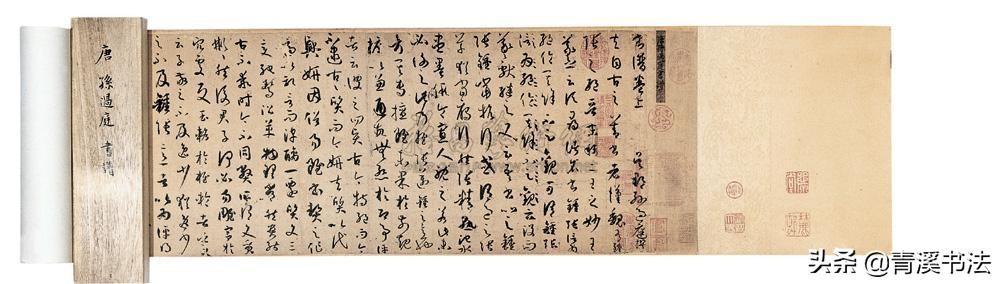 書譜卷上 吳郡孫過庭撰
夫自古之善書者漢魏有
鍾張之絕晉末稱二王之妙王
羲之云頃尋諸名書鍾張信為
絕倫其餘不足觀可謂鍾張
云沒而羲獻繼之又云吾書比之鍾
張鍾當抗行或謂過之張
草猶當雁行然張精熟池水
盡墨假令寡人耽之若此未
必謝之此乃推張邁鍾之意也
考其專擅雖未果於前規
摭以兼通故無慚於即事評
者云彼之四賢古今特絕而今
不逮古古質而今妍夫質以代
興妍因俗易雖書契之作
適以記言而淳醨一遷質文三
變馳騖沿革物理常然貴能
古不乖時今不同弊所謂文質
彬彬然後君子何必易雕宮於
穴處反玉輅於椎輪者乎又
云子敬之不及逸少猶逸少
之不及鍾張意者以為評得
唐 孫過庭 書譜
头条 @青溪书法